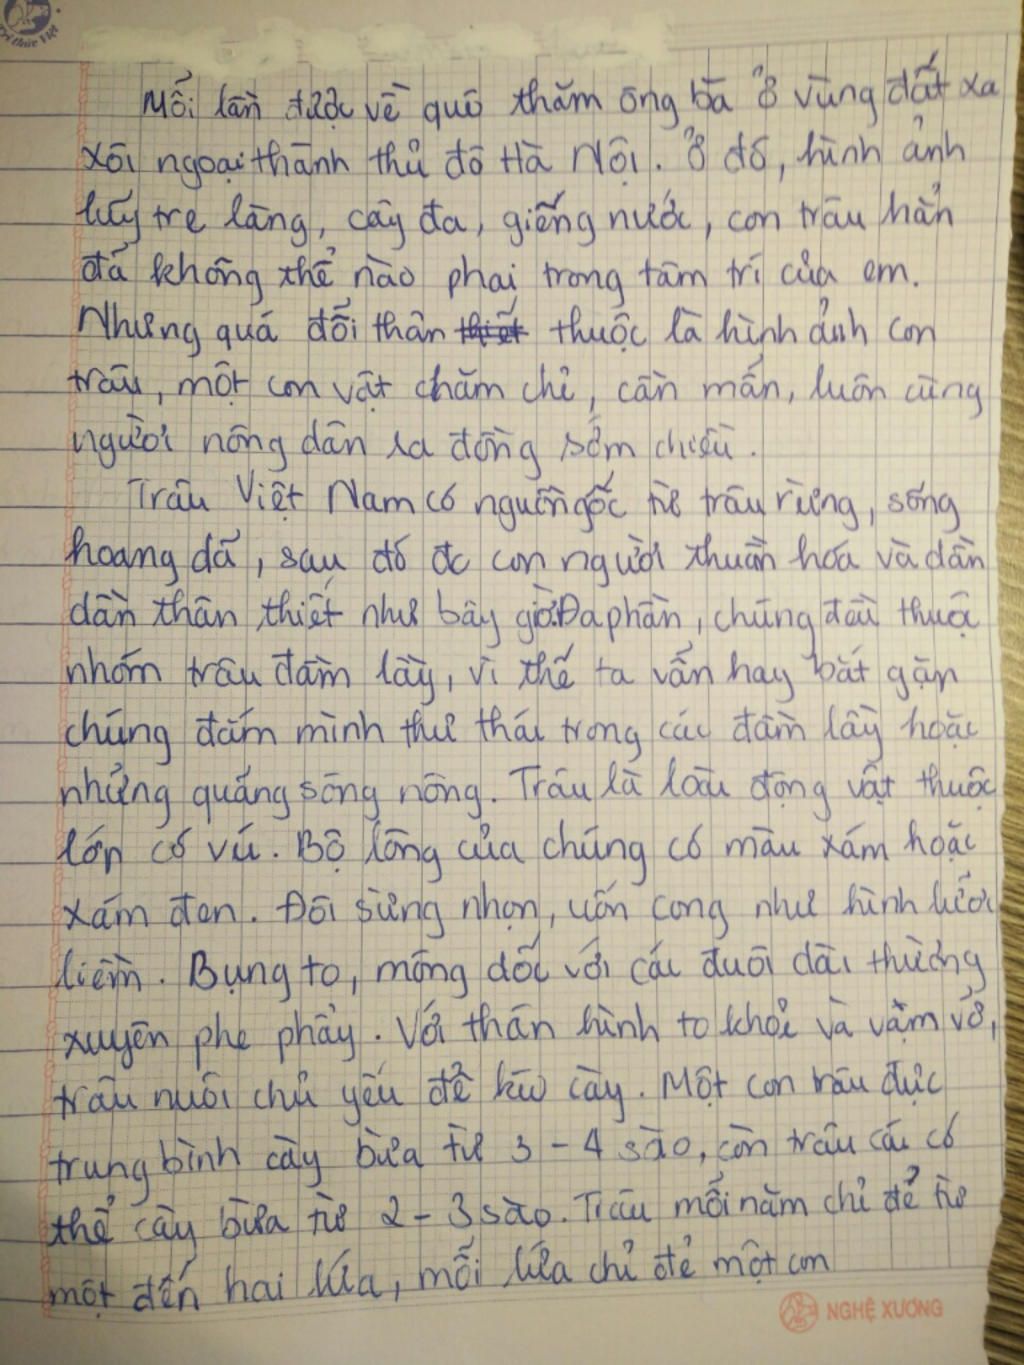 Trí thức Việt
Mỗi lần được về quê thăm ông bà ở vùng đất xa
xôi ngoại thành thủ đô Hà Nội. Ở đó, hình ảnh
lũy tre làng, cây đa, giếng nước, con trâu hẳn
đã không thể nào phai trong tâm trí của em.
Nhưng quá đỗi thân thuộc là hình ảnh con
trâu, một con vật chăm chỉ, cần mẫn, luôn cùng
người nông dân ra đồng sớm chiều.
Trâu Việt Nam có nguồn gốc từ trâu rừng, sống
hoang dã, sau đó đc con người thuần hóa và dần
dần thân thiết như bây giờ. Đa phần, chúng đều thuộc
nhóm trâu đầm lầy, vì thế ta vẫn hay bắt gặp
chúng đắm mình thư thái trong các đầm lầy hoặc
những quãng sông nông. Trâu là loài động vật thuộc
lớp có vú. Bộ lông của chúng có màu xám hoặc
xám đen. Đôi sừng nhọn, uốn cong như hình lưỡi
liềm. Bụng to, mông dốc với cái đuôi dài thường
xuyên phe phẩy. Với thân hình to khỏe và vạm vỡ,
trâu nuôi chủ yếu để kéo cày. Một con trâu đực
trung bình cày bừa từ 3 - 4 sào, còn trâu cái có
thể cày bừa từ 2 - 3 sào. Trâu mỗi năm chỉ đẻ từ
một đến hai lứa, mỗi lứa chỉ đẻ một con
NGHỆ XƯƠNG